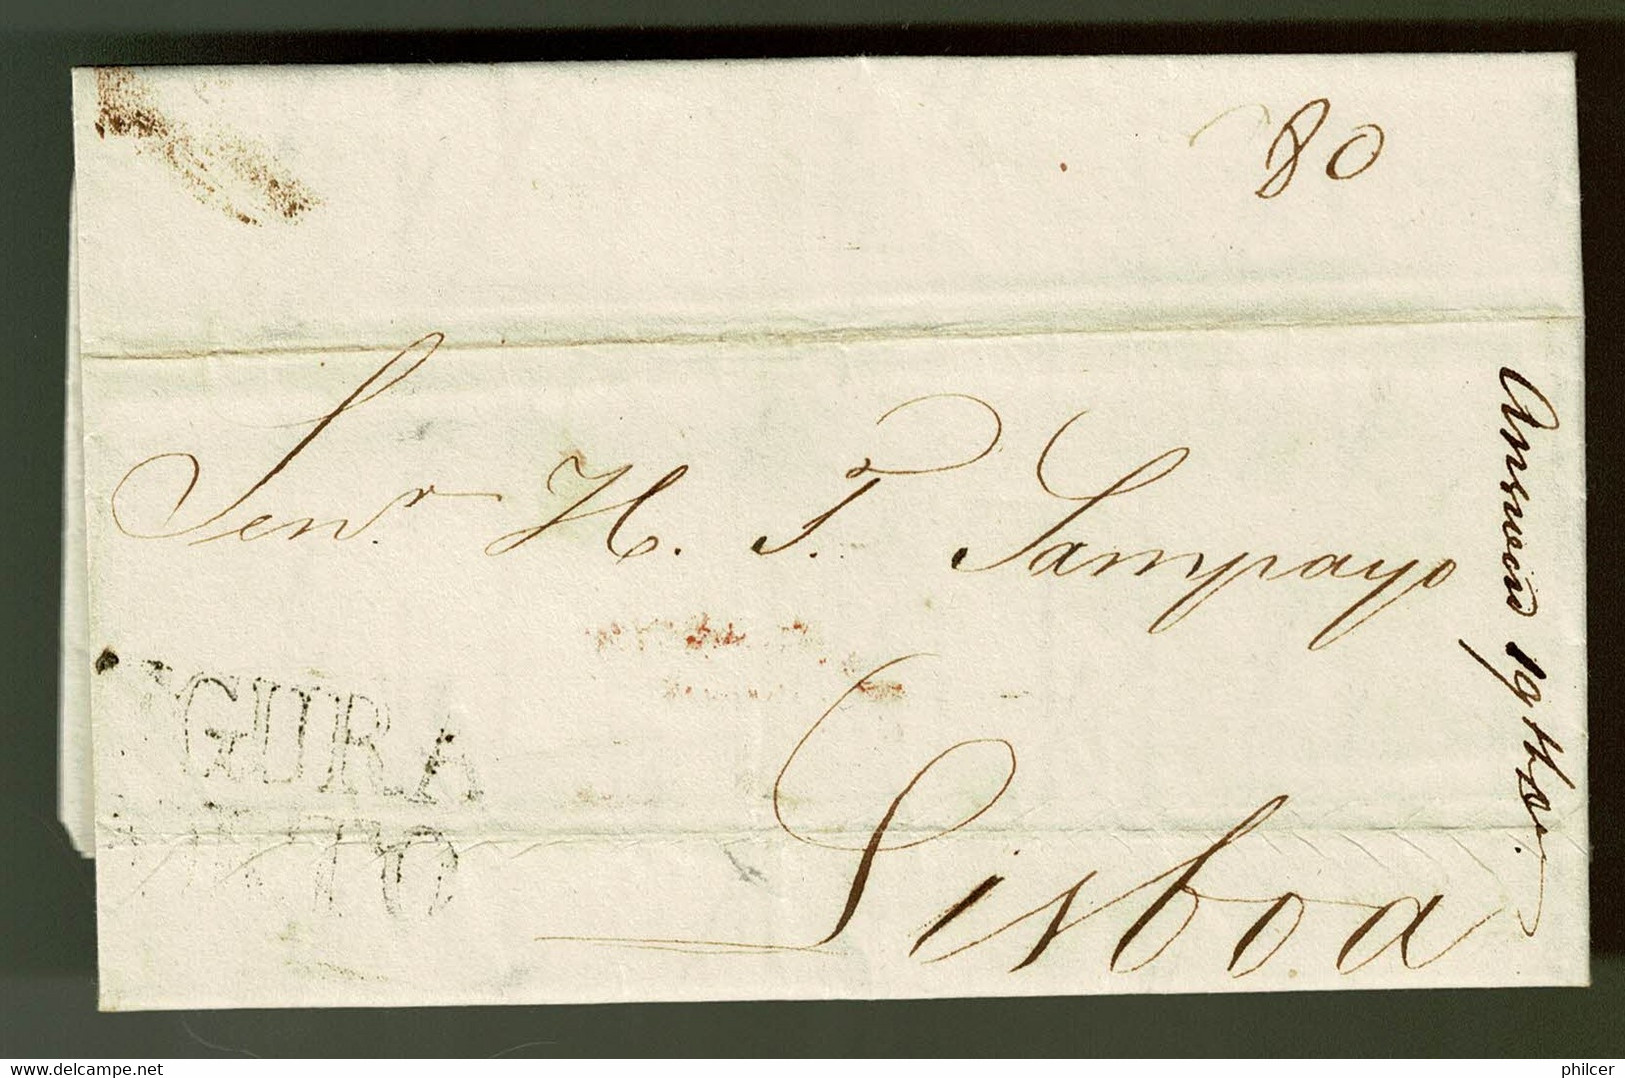 80
Senr. H. T. Sampayo
Lisboa
Answered 19
GURA
TO
delcampe.net
philcer